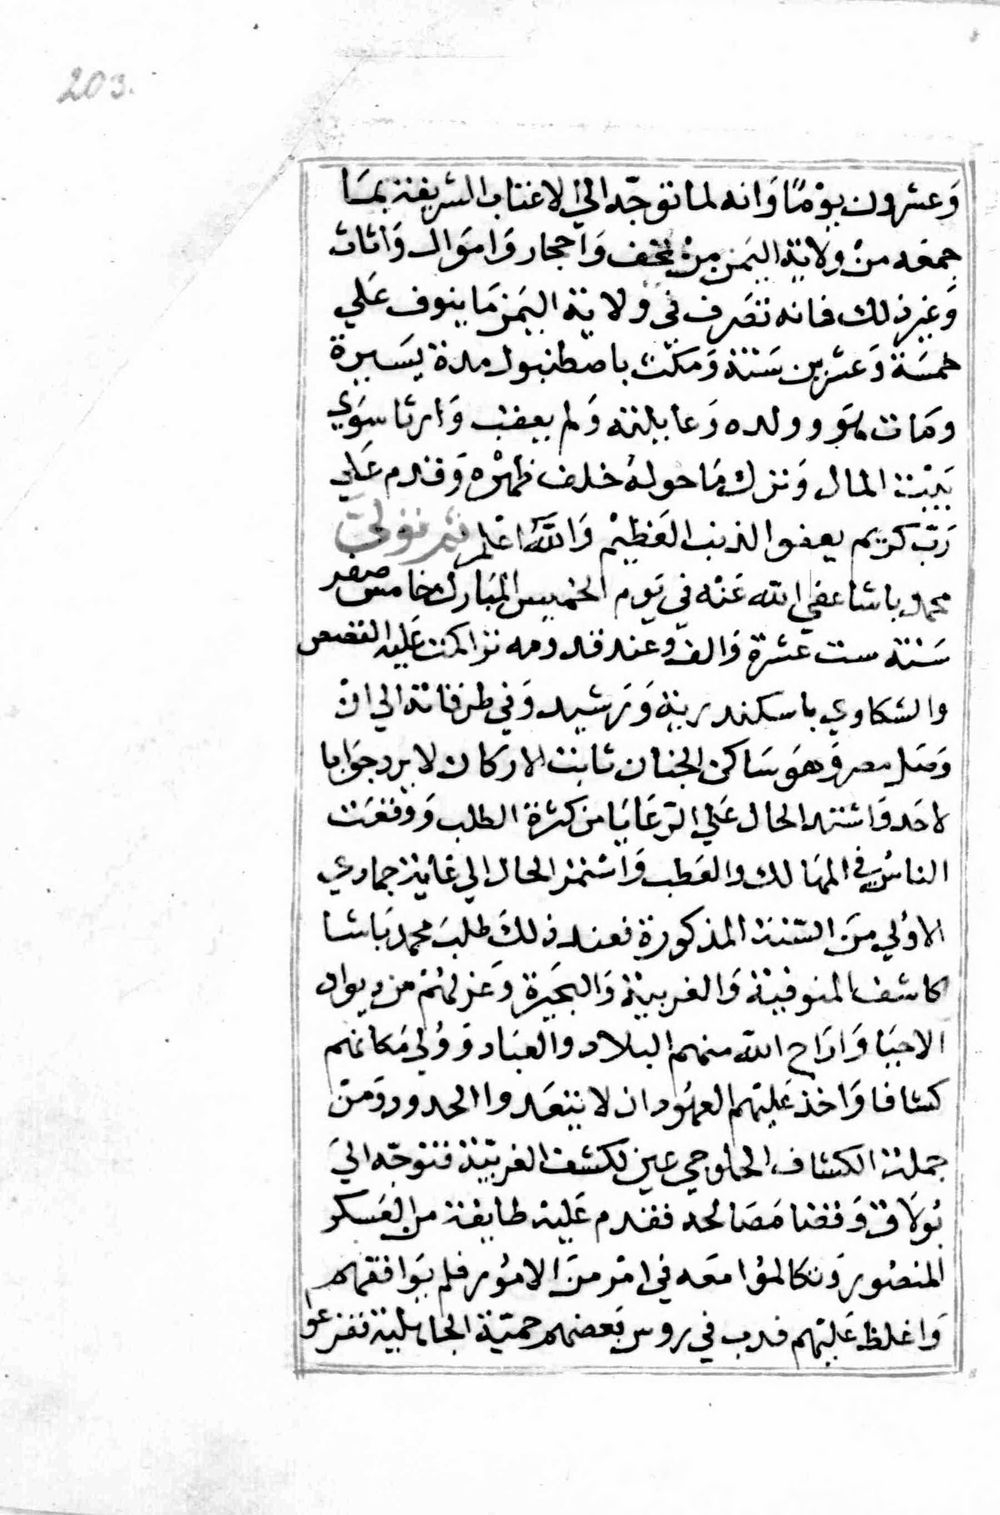 203.
وَعشرون يوْمًا وَانه لما توجّه الي الاعتاب الشريفة بمَا
جمعَه منْ ولايَة اليَمن مِنْ تحَف وَاحجار وَامَوال وَاثاث
وَغيرذلك فانه تصَرف في ولاية اليَمن مَا ينوف عَلي
خمسَة وَعشرين سَنة وَمكث باصطنبول مدة يسَيرة
ومَات هوَ وولده وَعايلته وَلم يعقب وَارثا سِوَي
بَيْت المال وَترك مَا حوله خلف ظهْره وَقدم عَلي
رَبّ كريم يعفو الذنب العَظيْم وَاللّٰه اعْلم ثم توليَ
محمد باشا عفي الله عَنْه في يَوم الخميس المبَارك خامس صفر
سَنة ست عَشرة وَالف وعند قدومه تراكمت عَليه القصص
والشكاوي باسكندرية وَرَشيد وَفي طرقاته الي انْ
وَصَل مصر وَهوَ سَاكن الجنان ثابت الاركان لا يرد جوَابا
لاحَد وَاشتد الحال عَلي الرعَايَا من كثرة الطلب وَوقعَت
الناسُ في المهَالك والعَطب وَاسْتمر الحال الي غايَة جمادي
الاوُلي مِنَ السّنة المذكورة فعند ذلك طلبَ محمد بَاشا
كاشف المنوفيَة وَالغربية وَالبحَيرة وَعزلهُمْ من ديوان
الاحيَا وَارَاح الله منهم البلاد والعبَاد وَوُلي مَكانهم
كشافا وَاخذ عَليهم العهُود ان لا يتعَدوا الحدود وَمنْ
جملة الكشاف الحلوجي عين لكشف الغربيّة فتوجّه اليَ
بُولاق وَقضا مَصَالحه فقدم عَليْه طايفة من العَسكر
المنصُور وَتكالموُا معَه في امْر منَ الامُور فلم يوَافقهم
وَاغلظ عَليْهم فدب في روس بَعضهم حميّة الجاهلية ففزعو